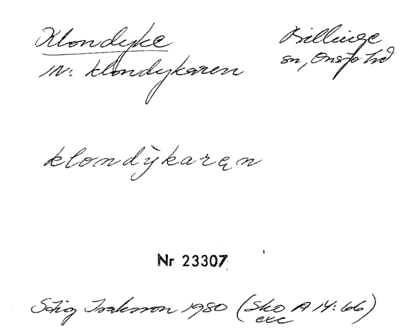 Klondyke
Billinge
IN: klondykaren
sn, Onsjö hd
klondȳkaręn
Nr 23307
Stig Isaksson 1980 (Sko A 14:66)
exc